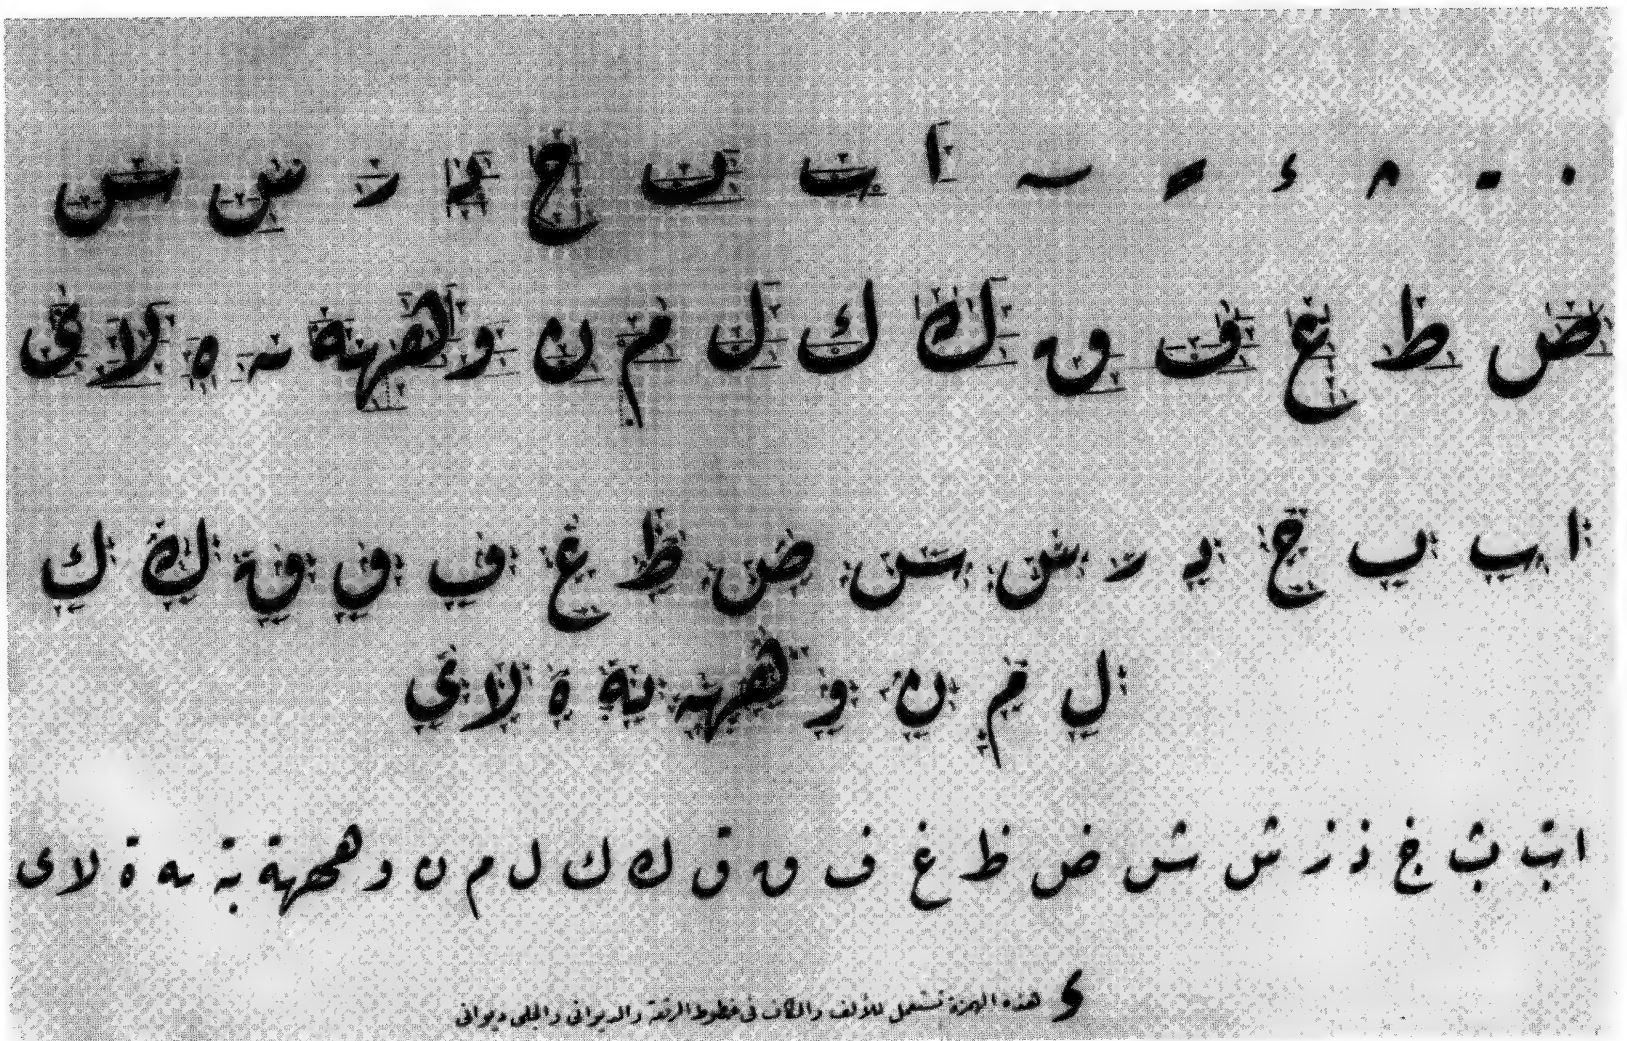 ا ب ٮ ح د ر س س
ض ط غ ف ق ك ك ل م ن و ههية ه لا ى
ا ب ب ج د ر س س ض ظ غ ف ق ق ك ك
ل م ن و ههيه ية ة لا ى
ا ب ث خ ذ ز ش ش ض ظ غ ف ق ق ك ك ل م ن و ههية ية ة لا ى
ء هذه الهمزة تستعمل للألف والكاف فى خطوط الرقعة والديوانى والجلى ديوانى